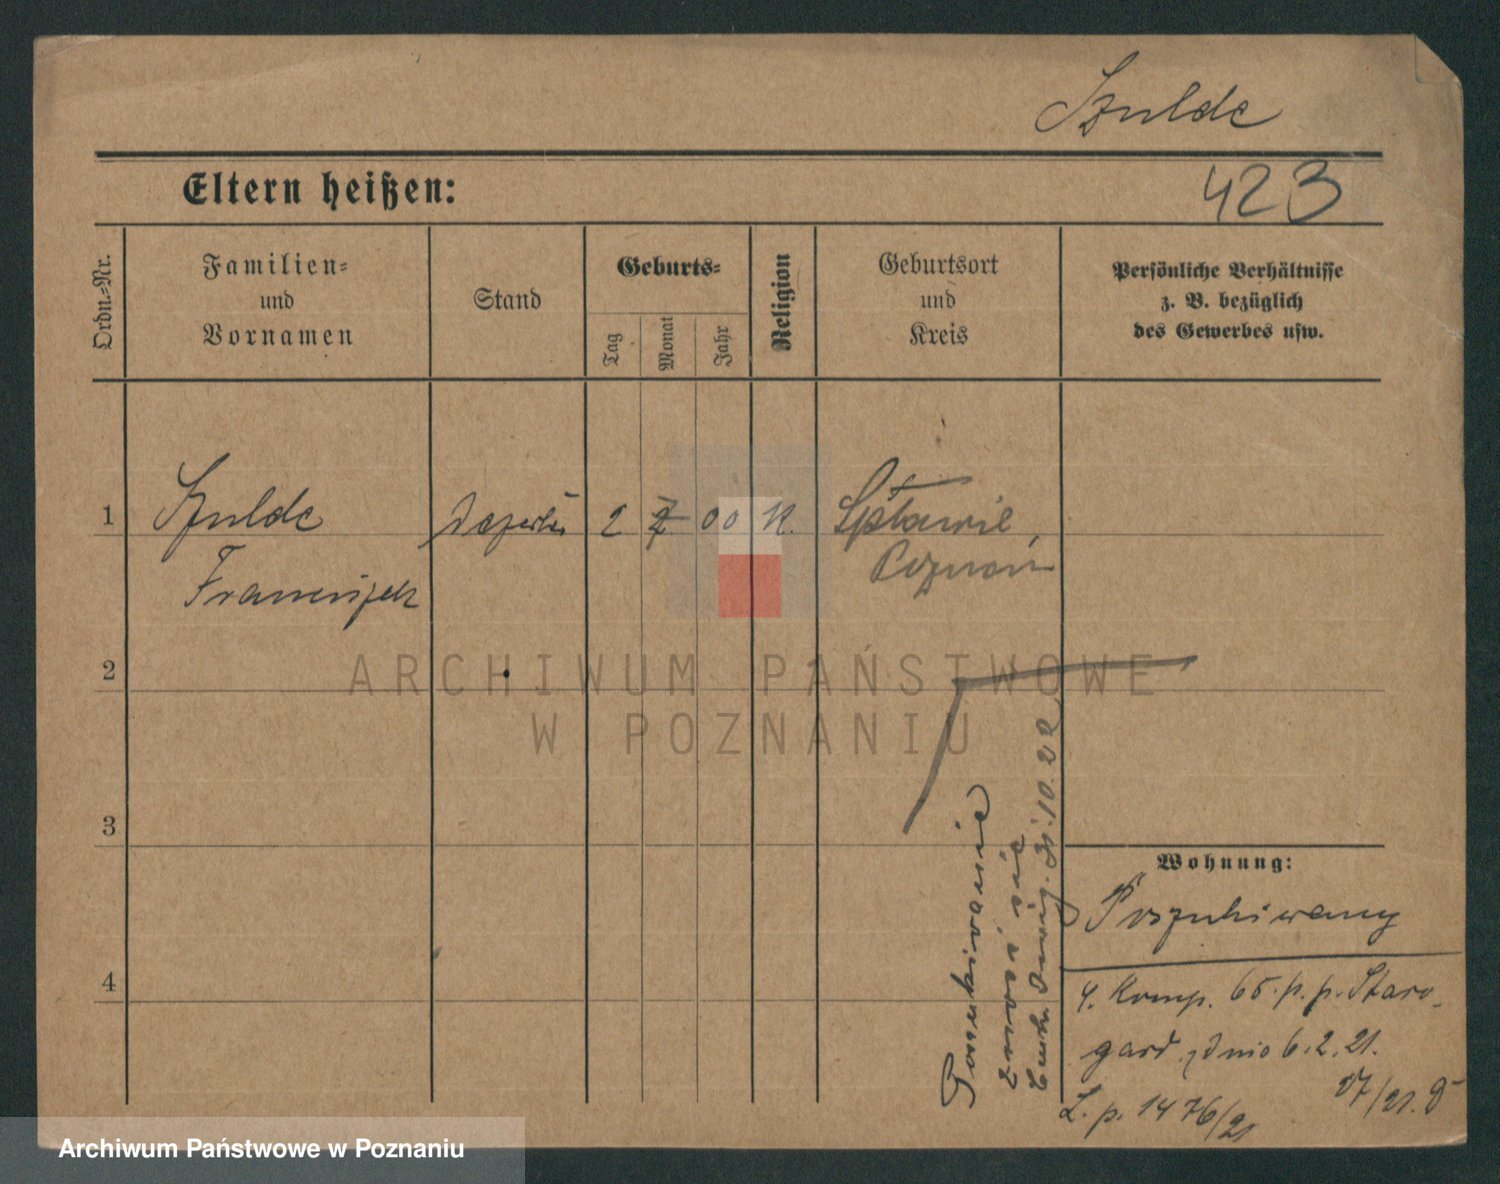 Szulde
Eltern heißen:
423
Ordn.-Nr.
Familien-
und
Vornamen
Stand
Geburts-
Tag
Monat
Jahr
Religion
Geburtsort
und
Kreis
Persönliche Verhältnisse
z. B. bezüglich
des Gewerbes usw.
1
Szulde
Franciszek
2
00
K.
Spławie,
Poznań
2
3
4
ARCHIWUM PAŃSTWOWE
W POZNANIU
Poszukiwanie
31.10.22
Wohnung:
Poszukiwany
4. Komp. 65. p. p. Staro-
gard, dnia 6.2.21.
L. p. 1476/21
Archiwum Państwowe w Poznaniu